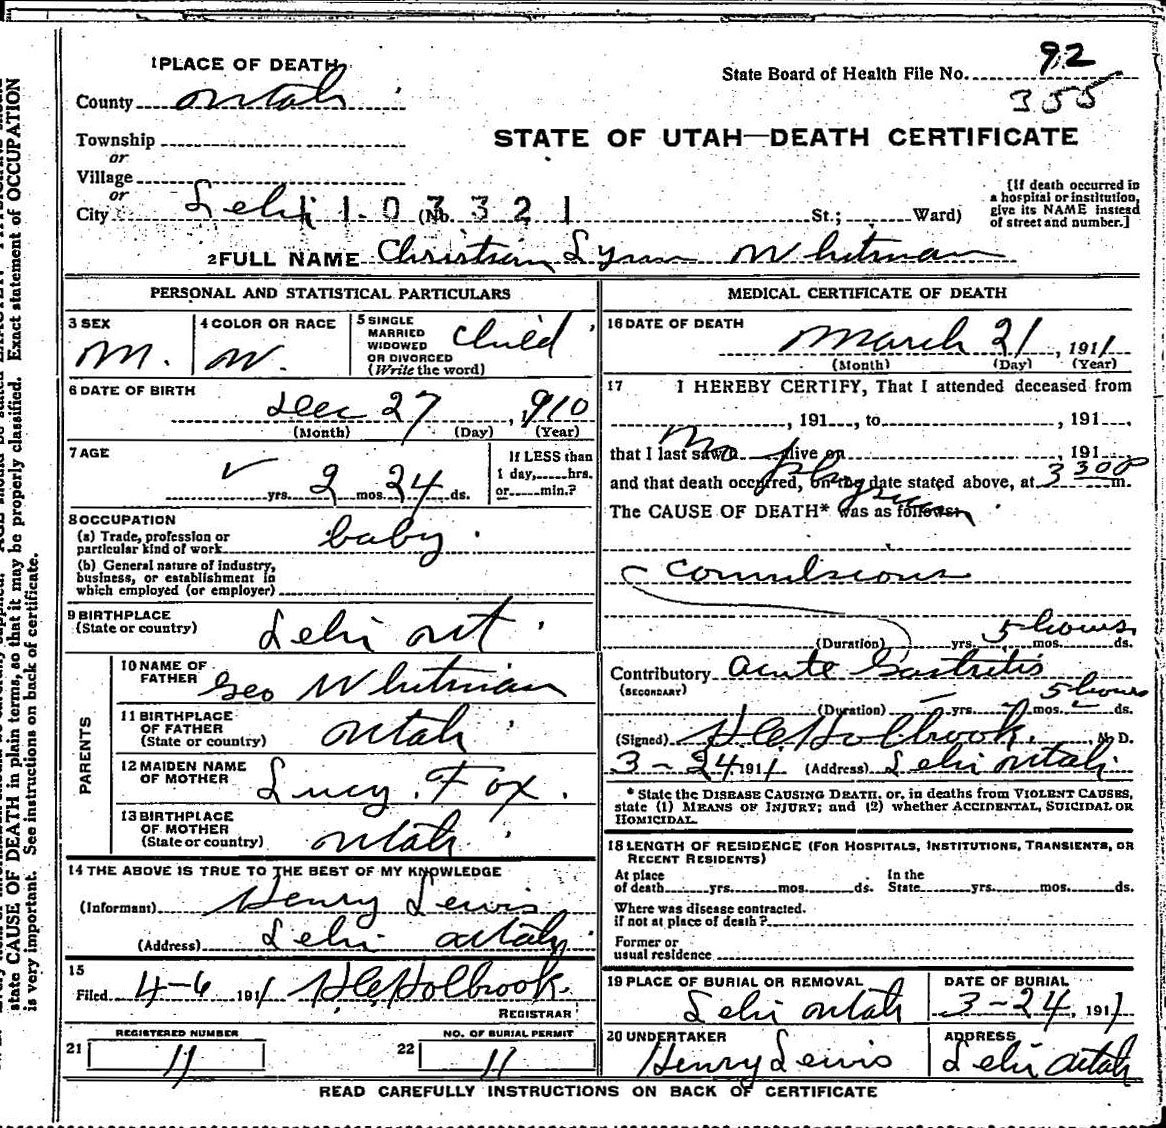 1 PLACE OF DEATH
State Board of Health File No. 92
355
County Utah
STATE OF UTAH—DEATH CERTIFICATE
Township
or
Village
or
City Lehi (No. St.; Ward)
1 1 0 3 3 2 1
[If death occurred in
a hospital or institution,
give its NAME instead
of street and number.]
2 FULL NAME Christian Lynn Whitman
PERSONAL AND STATISTICAL PARTICULARS
3 SEX
M.
4 COLOR OR RACE
W.
5 SINGLE
MARRIED
WIDOWED
OR DIVORCED
(Write the word)
Child
6 DATE OF BIRTH
Dec 27, 910
(Month) (Day) (Year)
7 AGE
yrs. 2 mos. 24 ds.
If LESS than
1 day, hrs.
or min.?
8 OCCUPATION
(a) Trade, profession or
particular kind of work
baby
(b) General nature of industry,
business, or establishment in
which employed (or employer)
9 BIRTHPLACE
(State or country)
Lehi Ut
PARENTS
10 NAME OF
FATHER
Geo Whitman
11 BIRTHPLACE
OF FATHER
(State or country)
Utah
12 MAIDEN NAME
OF MOTHER
Lucy Fox.
13 BIRTHPLACE
OF MOTHER
(State or country)
Utah
14 THE ABOVE IS TRUE TO THE BEST OF MY KNOWLEDGE
(Informant) Henry Lewis
(Address) Lehi Utah
15
Filed 4-6 1911 H C Holbrook.
REGISTRAR
REGISTERED NUMBER
21 11
NO. OF BURIAL PERMIT
22 11
MEDICAL CERTIFICATE OF DEATH
16 DATE OF DEATH
March 21, 1911
(Month) (Day) (Year)
17 I HEREBY CERTIFY, That I attended deceased from
, 191 , to , 191
that I last saw alive on , 191
No physician
and that death occurred, on the date stated above, at 3 30 P m.
The CAUSE OF DEATH* was as follows:
Convulsions
(Duration) yrs. mos. ds.
5 hours
Contributory Acute Gastritis
(SECONDARY)
(Duration) yrs. mos. ds.
5 hours
(Signed) H C Holbrook. M. D.
3-24 1911 (Address) Lehi Utah.
* State the DISEASE CAUSING DEATH, or, in deaths from VIOLENT CAUSES,
state (1) MEANS OF INJURY; and (2) whether ACCIDENTAL, SUICIDAL OR
HOMICIDAL.
18 LENGTH OF RESIDENCE (FOR HOSPITALS, INSTITUTIONS, TRANSIENTS, OR
RECENT RESIDENTS)
At place
of death yrs. mos. ds.
In the
State yrs. mos. ds.
Where was disease contracted.
if not at place of death?
Former or
usual residence
19 PLACE OF BURIAL OR REMOVAL
Lehi Utah
DATE OF BURIAL
3-24, 1911
20 UNDERTAKER
Henry Lewis
ADDRESS
Lehi Utah
READ CAREFULLY INSTRUCTIONS ON BACK OF CERTIFICATE
Exact statement of OCCUPATION
state CAUSE OF DEATH in plain terms, so that it may be properly classified.
is very important. See instructions on back of certificate.